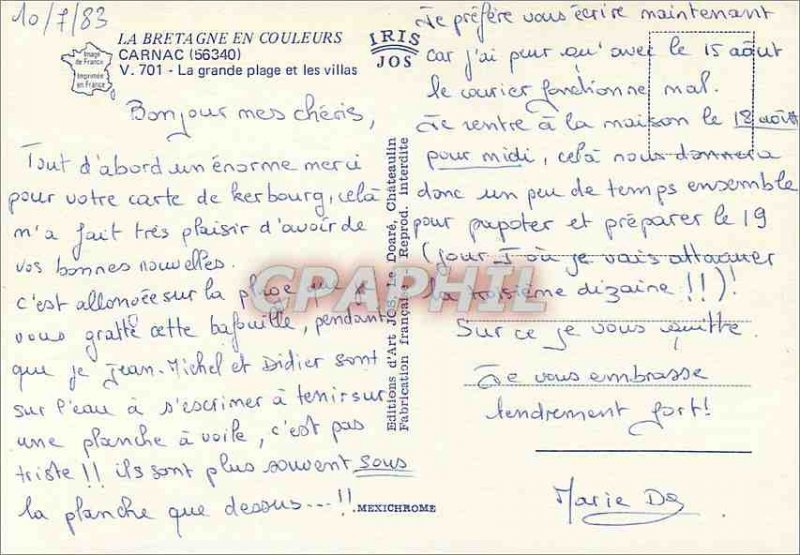 10/7/83
LA BRETAGNE EN COULEURS
CARNAC (56340)
V. 701 - La grande plage et les villas
Image
de France
Imprimée
en France
IRIS
JOS
Bonjour mes chéris,
Tout d'abord un énorme merci
pour votre carte de Kerbourg, celà
m'a fait très plaisir d'avoir de
vos bonnes nouvelles.
c'est allongée sur la plage que je
vous gratte cette bafouille, pendant
que je Jean-Michel et Didier sont
sur l'eau à s'escrimer à tenir sur
une planche à voile, c'est pas
triste!! ils sont plus souvent sous
la planche que dessus---!!
MEXICHROME
Editions d'Art JOS, Le Doaré, Châteaulin
Fabrication française Reprod. interdite
CPAPHIL
Je préfère vous écrire maintenant
car j'ai peur qu'avec le 15 août
le courier fonctionne mal.
Je rentre à la maison le 18 août
pour midi, celà nous donnera
donc un peu de temps ensemble
pour papoter et préparer le 19
(jour J où je vais attaquer
la troisième dizaine!!)!
Sur ce je vous quitte.
Je vous embrasse
tendrement fort!
Marie Do